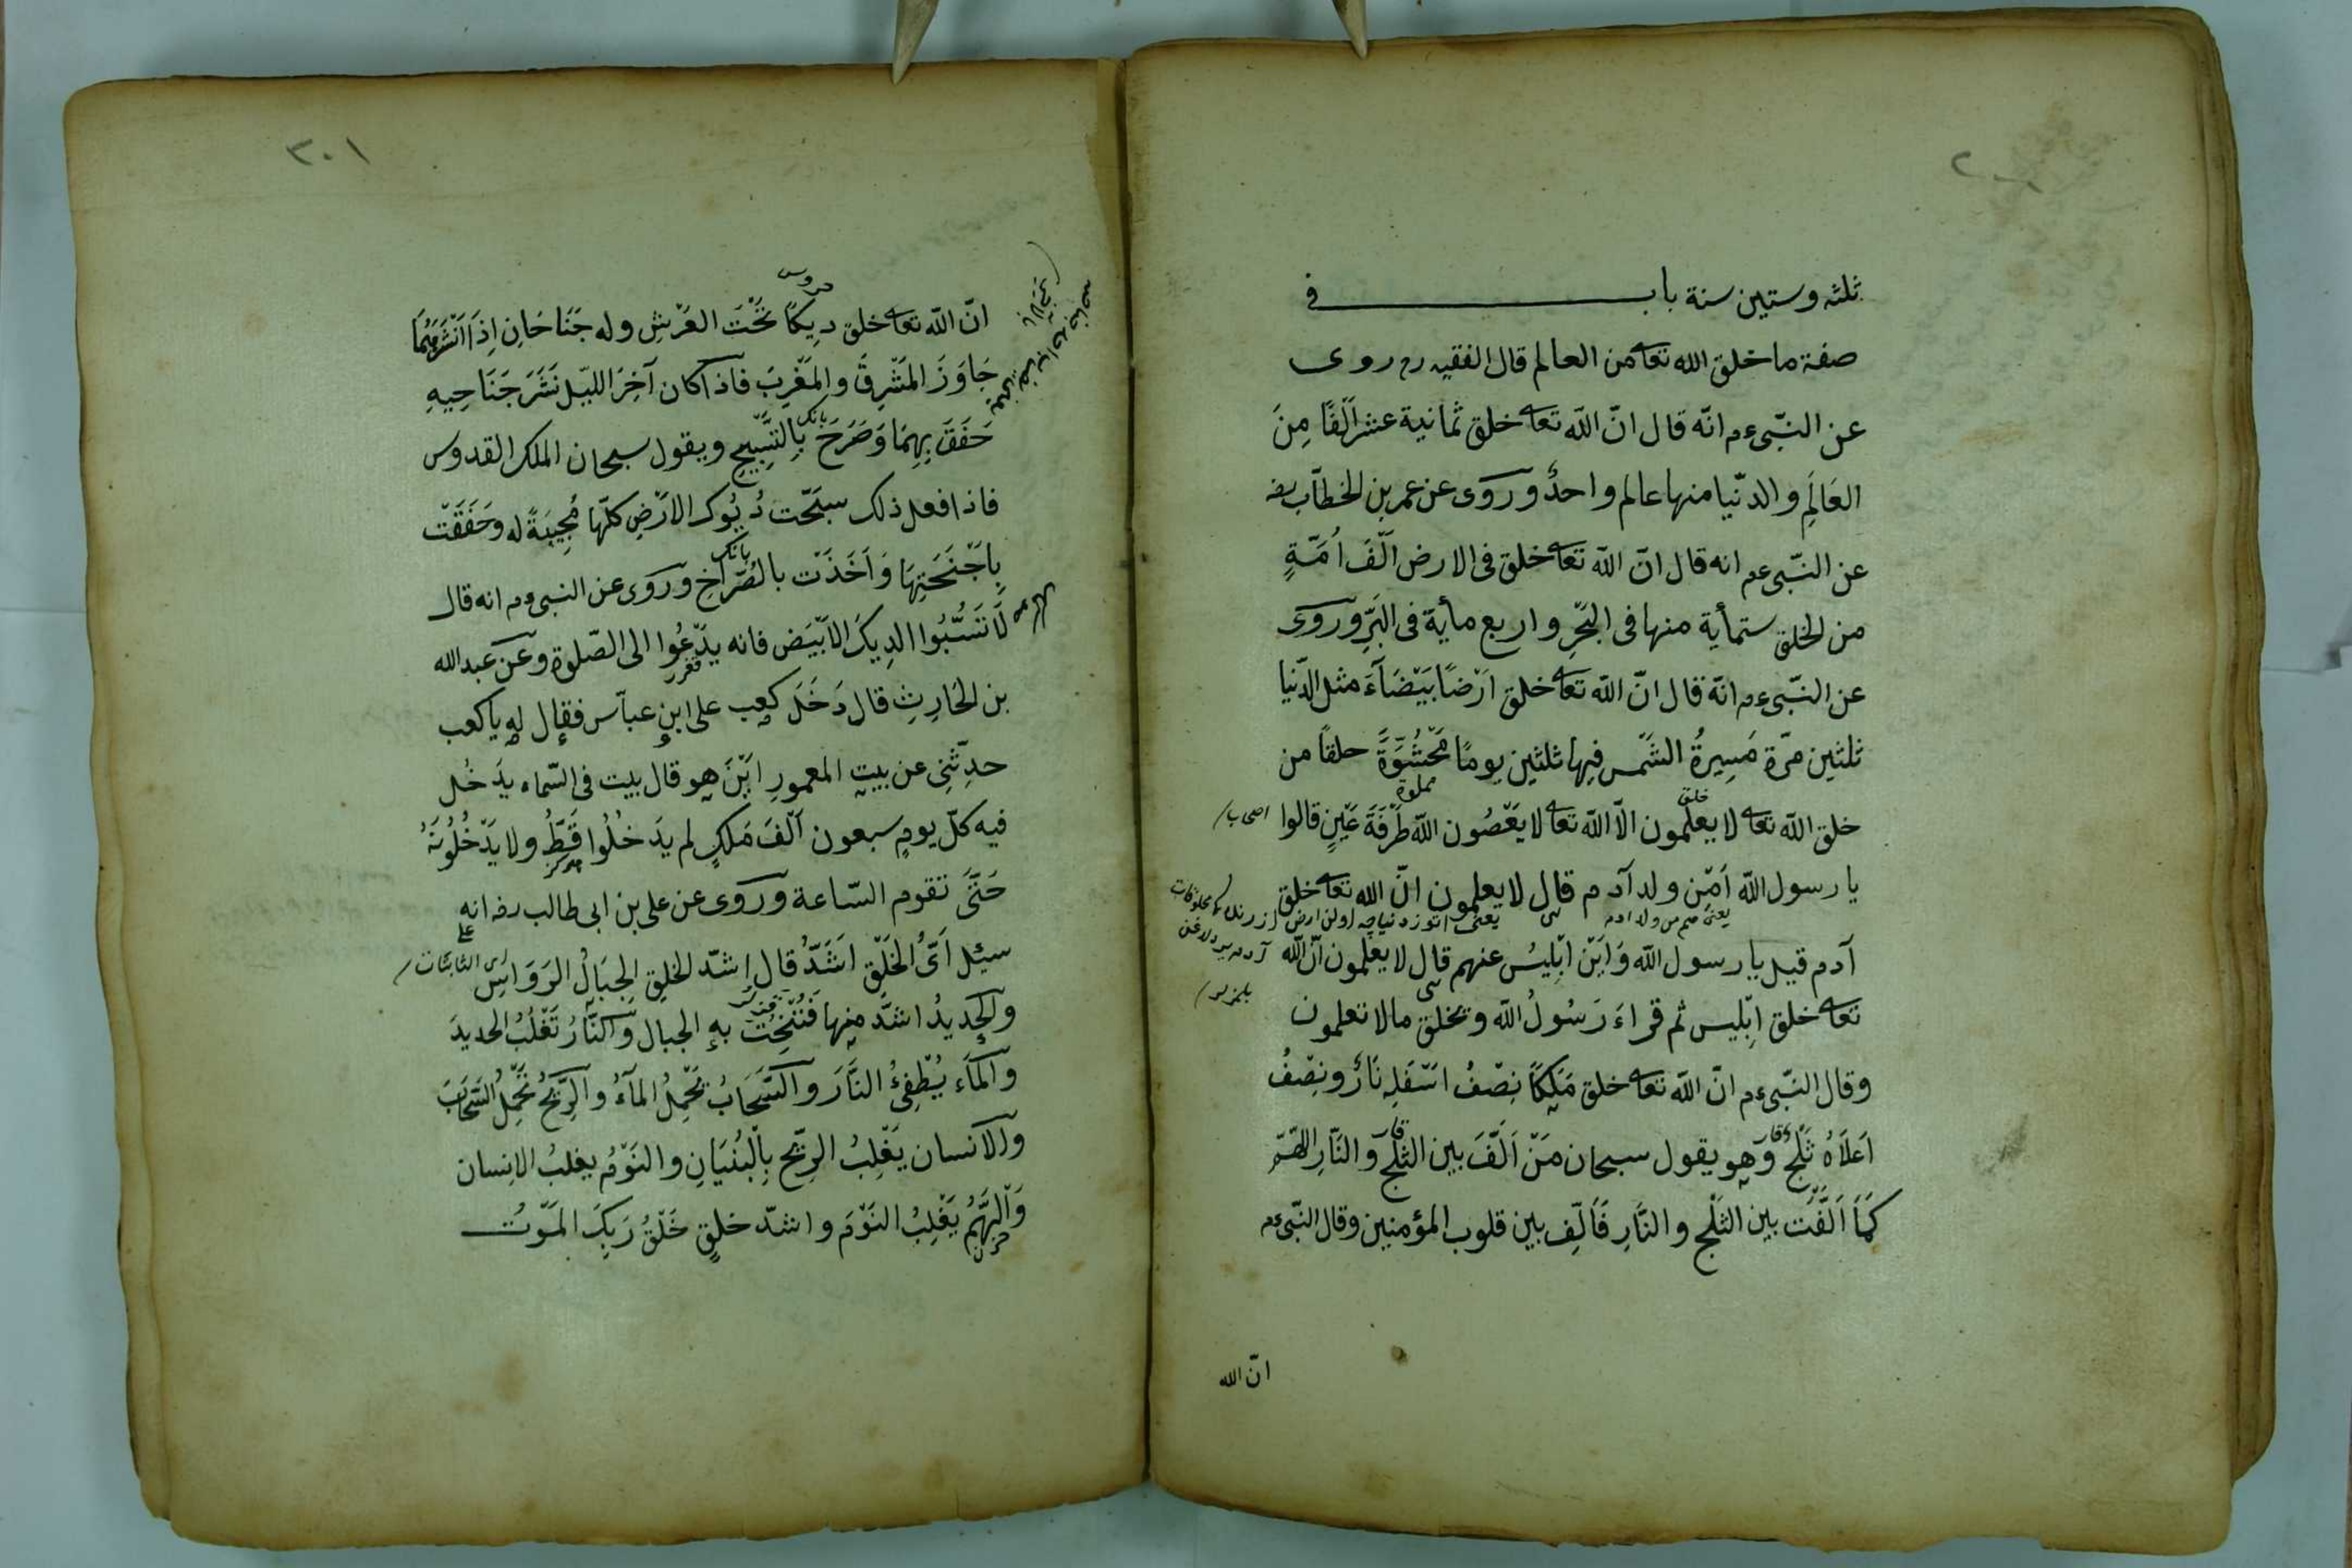 ثلثه وستين سنة باب في
صفة ما خلق الله تعا من العالم قال الفقيه رح روى
عن النّبى ءم انّه قال انّ الله تعا خلق ثمانية عشر اَلْفًا مِنَ
العَالَمِ والدنّيا منها عالم واحدٌ وروى عن عمر بن الخطّاب رضه
عن النّبى ءم انه قال انّ الله تعا خلق فى الارض اَلْفَ اُمَّةٍ
من الخلق ستمأية منها فى البَحْرِ واربع مأية فى البَرِّ وروى
عن النّبى ءم انّه قال انّ الله تعا خلق اَرْضًا بَيْضَاءَ مثل الدّنيا
ثلثين مرّة مَسِيرةُ الشَّمْس فيها ثلثين يومًا مَحْشُوَّةً حلقًا من
مملوة
خلق
خلق الله تعا لا يعلمون الاّ الله تعا لا يَعْصُون الله طَرْفَةَ عَيْنٍ قالوا
اصحاب
يا رسول الله اَمِنْ ولد آدم قال لا يعلمون انّ الله تعا خلق
يعنى من ولد ادم
آدم قيل يا رسول الله وَاَيْنَ اِبْلِيسُ عنهم قال لا يعلمون انّ الله
تعا خلق اِبْليس ثم قراءَ رَسُولُ الله ويخلق مالا تعلمون
وقال النّبى ءم انّ الله تعا خلق مَلَكًا نِصْفُ اسْفَلِه نَارٌ ونِصْفُ
اَعْلاَهُ ثَلْج وهو يقول سبحان مَنْ اَلَّفَ بين الثَلْج والنَّارِ اللهمّ
قار
قار
كَمَا اَلَّفْتَ بين الثَلْج والنَّارِ فَاَلِّف بين قلوب المؤمنين وقال النّبى ءم
انّ الله
٣٠١
حروس
انّ الله تعا خلق دِيكًا تَحْتَ العَرْشِ وله جَنَاحَانِ اِذَا اَنْشَرَهُمَا
جَاوَزَ المَشْرِقَ والمَغْرِبَ فاذا كان آخِرَ الليّل نَشَرَ جَنَاحِيهِ
حَفَقَ بِهِمَا وَصَرَخَ بِالتَسْبِيحِ ويقول سبحان الملك القدوس
بانك
فاذا فعل ذلك سبّحت دُيُوك الاَرْضِ كلّها مُجِيبَةً له وحَفَقَتْ
بِاَجْنَحَتِهَا وَاَخَذَتْ بالصُّرَاخِ وروى عن النبى ءم انه قال
بانك
لَا تَسُبُّوا الدِيكَ الاَبْيَض فانه يَدْعُوا الى الصّلوة وعن عبد الله
بن الحَارِثِ قال دَخَلَ كعب على ابنِ عبّاس فقال له يا كعب
حدِّثنِى عن بيت المعمورِ اَيْنَ هو قال بيت فى السّماء يَدْخُل
فيه كلّ يومٍ سبعون اَلْفَ مَلَكٍ لم يَدْخُلُوا قَطُّ ولا يَدْخُلُونَهُ
حَتَّى تقوم السّاعة وروى عن على بن ابى طالب رضه انه
سئِل اَىُّ الخَلْقِ اَشَدُّ قال اشدّ الخلق الجِبَالُ الرَوَاسِى
اى الثابتات
والحَدِيدُ اشدَّ منها فَتُنْحَتُ بهِ الجبال والنَّارُ تَغْلُبُ الحديدَ
والمَاء يُطْفِئُ النَّارَ والسَّحَابُ تَحْمِلُ الماءُ والرِّيحُ تَحْمِلُ السَّحَابَ
والانسان يَغْلِبُ الرِيّح بِالْبُنْيَانِ والنَوْمُ يغلبُ الاِنسان
وَالْهَمُّ يَغْلِبُ النَوْمَ واشدّ خلقٍ خَلْقُ رَبِكَ المَوْتُ
حزن